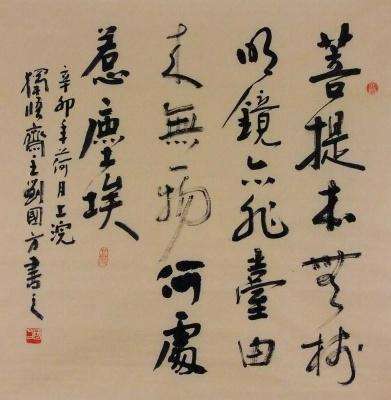 菩提本無樹
明鏡亦非臺由
来無一物何處
惹塵埃
辛卯年荷月上浣
獨悟齋主劉國方書之